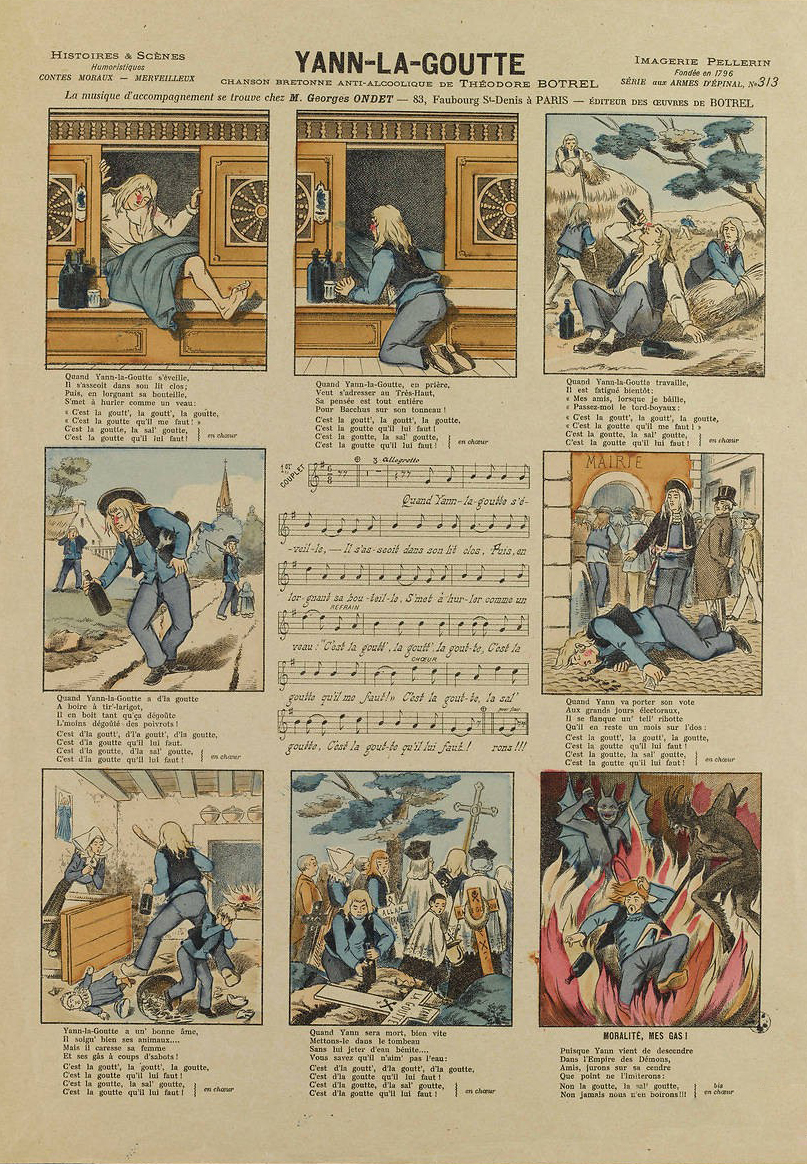 HISTOIRES & SCÈNES
Humoristiques
CONTES MORAUX — MERVEILLEUX
YANN-LA-GOUTTE
CHANSON BRETONNE ANTI-ALCOOLIQUE DE THÉODORE BOTREL
IMAGERIE PELLERIN
Fondée en 1796
SÉRIE aux ARMES D'ÉPINAL, No 313
La musique d'accompagnement se trouve chez M. Georges ONDET — 83, Faubourg St-Denis à PARIS — ÉDITEUR DES ŒUVRES DE BOTREL
Quand Yann-la-Goutte s'éveille,
Il s'asseoit dans son lit clos;
Puis, en lorgnant sa bouteille,
S'met à hurler comme un veau:
« C'est la goutt', la goutt', la goutte,
« C'est la goutte qu'il me faut! »
C'est la goutte, la sal' goutte,
C'est la goutte qu'il lui faut!
en chœur
Quand Yann-la-Goutte, en prière,
Veut s'adresser au Très-Haut,
Sa pensée est tout entière
Pour Bacchus sur son tonneau!
C'est la goutt', la goutt', la goutte,
C'est la goutte qu'il lui faut!
C'est la goutte, la sal' goutte,
C'est la goutte qu'il lui faut!
en chœur
Quand Yann-la-Goutte travaille,
Il est fatigué bientôt:
« Mes amis, lorsque je bâille,
« Passez-moi le tord-boyaux:
« C'est la goutt', la goutt', la goutte,
« C'est la goutte qu'il me faut! »
C'est la goutte, la sal' goutte,
C'est la goutte qu'il lui faut!
en chœur
Quand Yann-la-Goutte a d'la goutte
A boire à tir'-larigot,
Il en boit tant qu'ça dégoûte
L'moins dégoûté des poivrots!
C'est d'la goutt', d'l'a goutt', d'la goutte,
C'est d'la goutte qu'il lui faut.
C'est d'la goutte, d'la sal' goutte,
C'est d'la goutte qu'il lui faut!
en chœur
1er COUPLET
Allegretto
Quand Yann-la-goutte s'é-
-veil-le, — Il s'as-seoit dans son lit clos, Puis, en
lor-gnant sa bou-teil-le, S'met à hur-ler comme un
REFRAIN
veau: "C'est la goutt', la goutt', la gout-te, C'est la
CHŒUR
goutte qu'il me faut!» C'est la gout-te, la sal'
pour finir
goutte, C'est la gout-te qu'il lui faut! rons!!!
MAIRIE
Quand Yann va porter son vote
Aux grands jours électoraux,
Il se flanque un' tell' ribotte
Qu'il en reste un mois sur l'dos:
C'est la goutt', la goutt', la goutte,
C'est la goutte qu'il lui faut!
C'est la goutte, la sal' goutte,
C'est la goutte qu'il lui faut!
en chœur
Yann-la-Goutte a un' bonne âme,
Il soign' bien ses animaux....
Mais il caresse sa femme
Et ses gâs à coups d'sabots!
C'est la goutt', la goutt', la goutte,
C'est la goutte qu'il lui faut!
C'est la goutte, la sal' goutte,
C'est la goutte qu'il lui faut!
en chœur
Quand Yann sera mort, bien vite
Mettons-le dans le tombeau
Sans lui jeter d'eau bénite....
Vous savez qu'il n'aim' pas l'eau:
C'est d'la goutt', d'la goutt', d'la goutte,
C'est d'la goutte qu'il lui faut!
C'est d'la goutte, d'la sal' goutte,
C'est d'la goutte qu'il lui faut!
en chœur
MORALITÉ, MES GAS!
Puisque Yann vient de descendre
Dans l'Empire des Démons,
Amis, jurons sur sa cendre
Que point ne l'imiterons:
Non la goutte, la sal' goutte,
Non jamais nous n'en boirons!!!
bis
en chœur